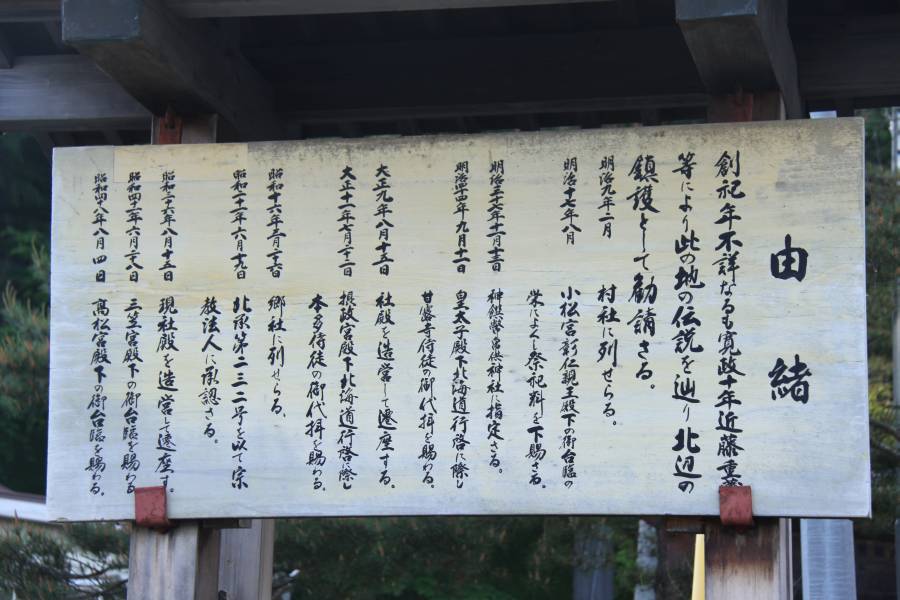 由緒
創祀年不詳なるも寛政十年近藤重蔵
等により此の地の伝説を辿り北辺の
鎮護として勧請さる。
明治九年二月 村社に列せらる。
明治十七年八月 小松宮彰仁親王殿下の御台臨の
栄によくし祭祀料を下賜さる。
明治三十七年十一月十二日 神饌幣帛供神社に指定さる。
明治四十四年九月十一日 皇太子殿下北海道行啓に際し
甘露寺侍従御代拝を賜わる。
大正九年八月十五日 社殿を造営して遷座する。
大正十一年七月二十二日 摂政宮殿下北海道行啓に際し
本多侍従の御代拝を賜わる。
昭和十六年三月二十六日 郷社に列せらる。
昭和二十一年六月十九日 北承第二三二号を以て宗
教法人に承認さる。
昭和三十六年八月十五日 現社殿を造営して遷座す。
昭和四十二年六月二十八日 三笠宮殿下の御台臨を賜わる
昭和四十八年八月四日 高松宮殿下の御台臨を賜わる。